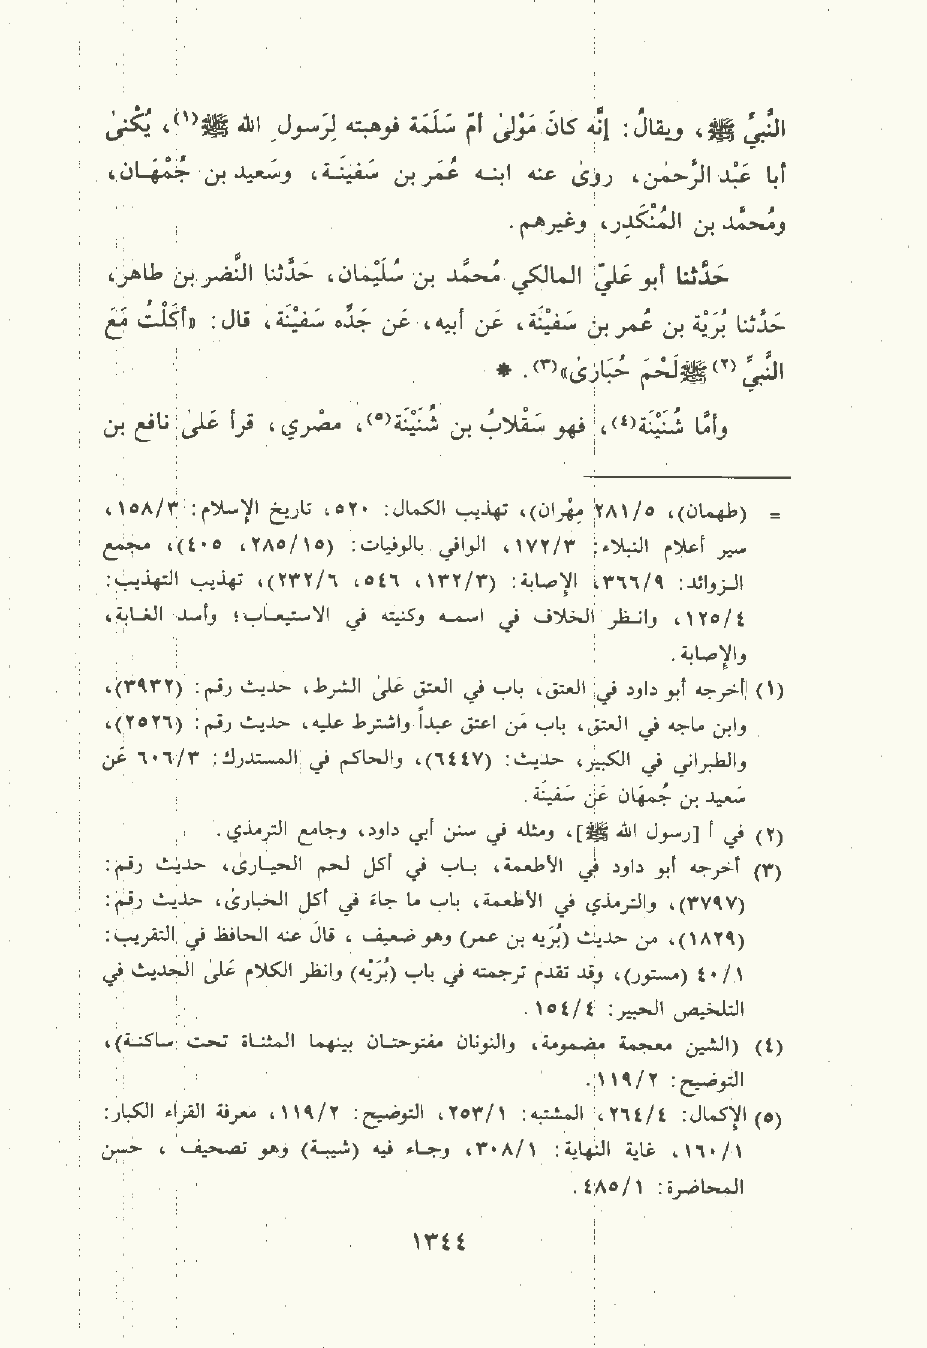 النَّبيِّ ﷺ، ويقالُ: إنَّه كانَ مَوْلىٰ أمّ سَلَمَة فوهبته لِرَسولِ الله ﷺ(١)، يُكْنىٰ
أبا عَبْد الرَّحمٰن، روىٰ عنه ابنه عُمَر بن سَفينَة، وسَعيد بن جُمْهَان،
ومُحمَّد بن المُنْكَدِر، وغيرهم.
حَدَّثنا أبو عَليّ المالكي مُحمَّد بن سُلَيْمَان، حَدَّثنا النَّضر بن طاهر،
حَدَّثنا بُرَيْة بن عُمر بن سَفيْنَة، عَن أبيه، عَن جَدّه سَفيْنَة، قال: «أكَلْتُ مَعَ
النَّبيِّ(٢) ﷺ لَحْمَ حُبَارىٰ»(٣). *
وأمَّا شُنَيْنَة(٤)، فهو سَقْلابُ بن شُنَيْنَة(٥)، مصْري، قرأ عَلىٰ نافع بن
= (طهمان)، ٢٨١/٥ (مِهْران)، تهذيب الكمال: ٥٢٠، تاريخ الإسلام: ١٥٨/٣،
سير أعلام النبلاء: ١٧٢/٣، الوافي بالوفيات: (٢٨٥/١٥، ٤٠٥)، مجمع
الزوائد: ٣٦٦/٩، الإصابة: (١٣٢/٣، ٥٤٦، ٢٣٢/٦)، تهذيب التهذيب:
١٢٥/٤، وانظر الخلاف في اسمه وكنيته في الاستيعاب؛ وأسد الغابة،
والإصابة.
(١) أخرجه أبو داود في العتق، باب في العتق عَلىٰ الشرط، حديث رقم: (٣٩٣٢)،
وابن ماجه في العتق، باب مَن اعتق عبداً واشترط عليه، حديث رقم: (٢٥٢٦)،
والطبراني في الكبير، حديث: (٦٤٤٧)، والحاكم في المستدرك: ٦٠٦/٣ عَن
سَعيد بن جُمهَان عَن سَفينَة.
(٢) في أ [رسول الله ﷺ]، ومثله في سنن أبي داود، وجامع الترمذي.
(٣) أخرجه أبو داود في الأطعمة، باب في أكل لحم الحبارىٰ، حديث رقم:
(٣٧٩٧)، والترمذي في الأطعمة، باب ما جاءَ في أكل الحبارىٰ، حديث رقم:
(١٨٢٩)، من حديث (بُرَيه بن عمر) وهو ضعيف، قالَ عنه الحافظ في التقريب:
٤٠/١ (مستور)، وقد تقدم ترجمته في باب (بُرَيْه) وانظر الكلام عَلىٰ الحديث في
التلخيص الحبير: ١٥٤/٤.
(٤) (الشين معجمة مضمومة، والنونان مفتوحتان بينهما المثناة تحت ساكنة)،
التوضيح: ١١٩/٢.
(٥) الإكمال: ٢٦٤/٤، المشتبه: ٢٥٣/١، التوضيح: ١١٩/٢، معرفة القراء الكبار:
١٦٠/١، غاية النهاية: ٣٠٨/١، وجاء فيه (شيبة) وهو تصحيف، حسن
المحاضرة: ٤٨٥/١.
١٣٤٤